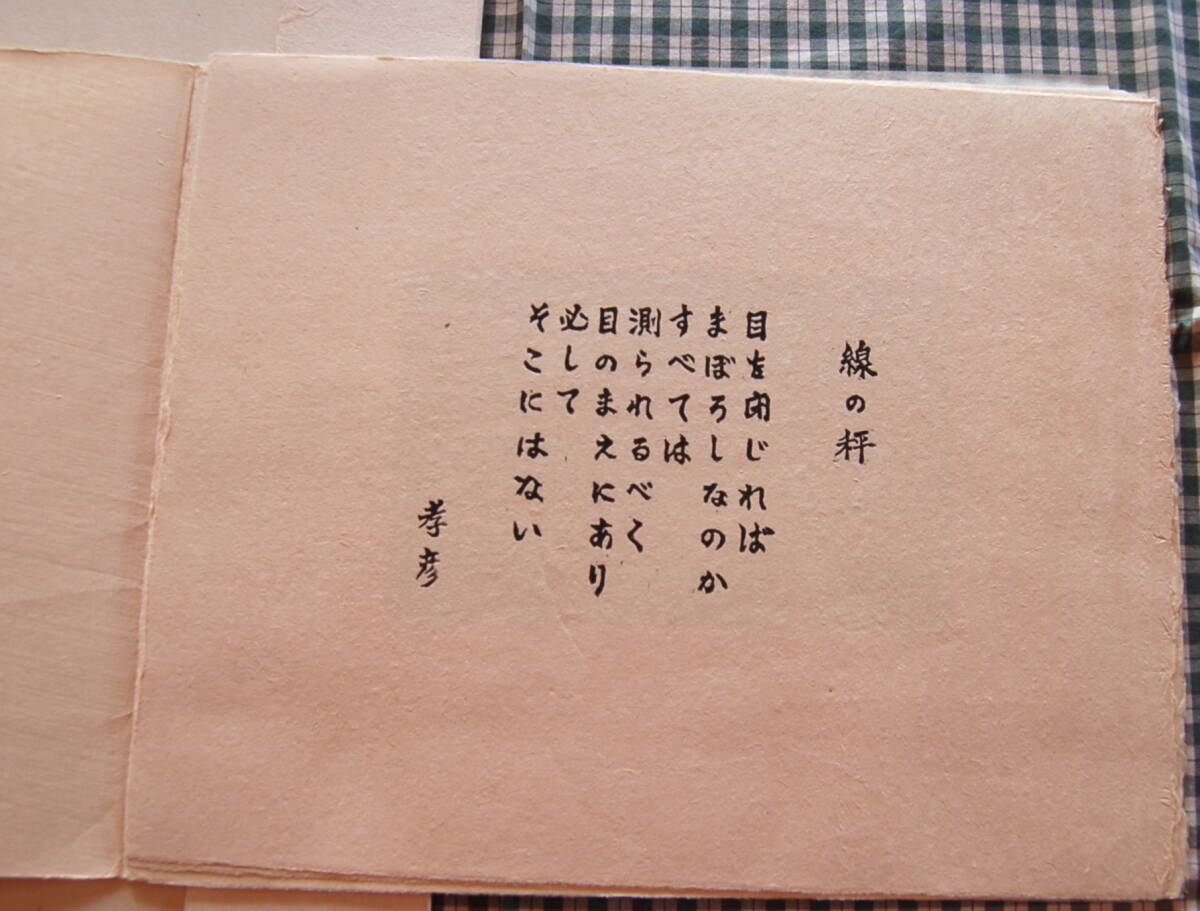 線の秤
目を閉じれば
まぼろしなのか
すべては
測られるべく
目のまえにあり
必して
そこにはない
孝彦